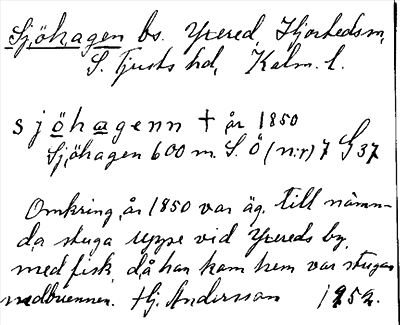 Sjöhagen bs. Yxered, Hjortedsm,
S. Tjusts hd, Kalm. l.
sjöhagenn † år 1850
Sjöhagen 600 m. S. Ö (n:r) 7 G 37
Omkring år 1850 var äg. till nämn-
da stuga uppe vid Yxereds by,
med fisk, då han kom hem var stugan
nedbrunnen. Hj. Andersson 1952.